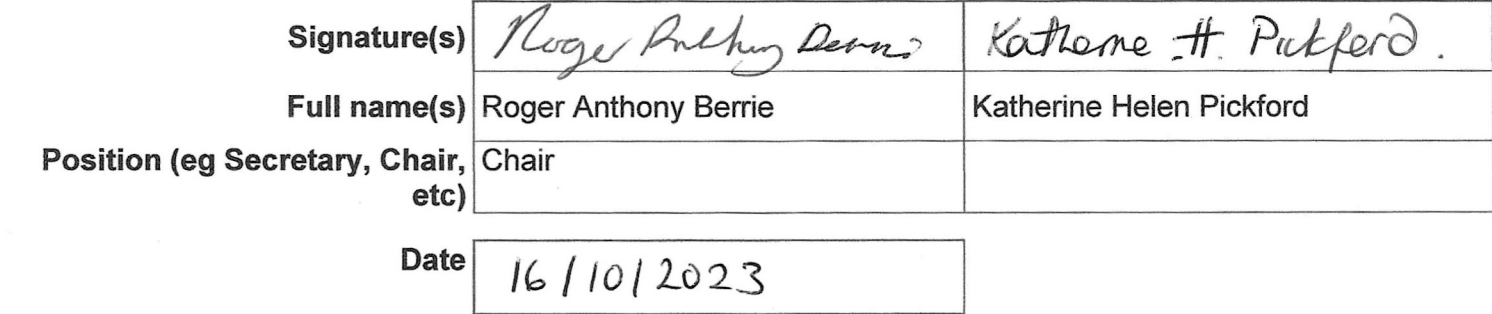 Signature(s) Roger Anthony Berrie Katherine H. Pickford.
Full name(s) Roger Anthony Berrie Katherine Helen Pickford
Position (eg Secretary, Chair, Chair
etc)
Date 16/10/2023